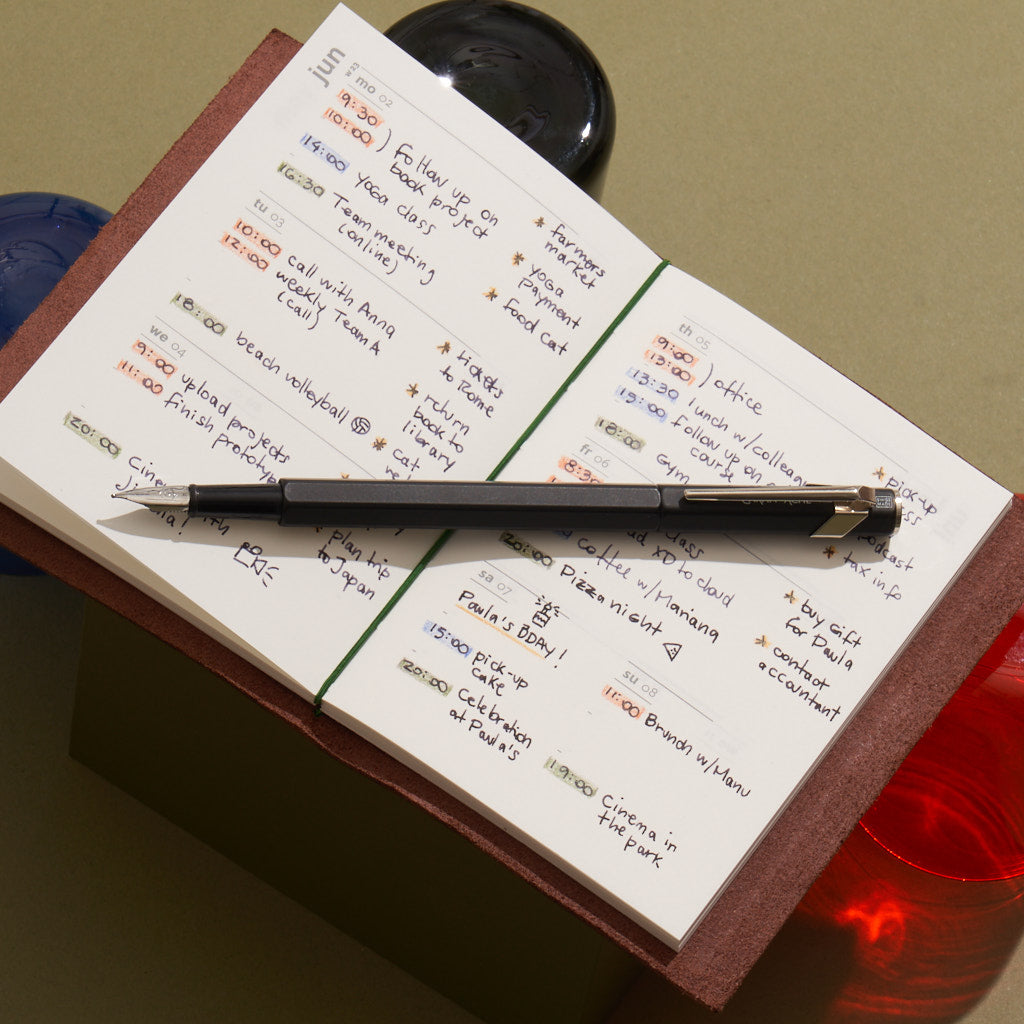 jun
W 23
mo 02
9:30
10:00 ) Follow up on
book project
14:00 YOGA class
16:30 Team meeting
(online)
* farmers
market
* YOGA
payment
* Food cat
tu 03
10:00 call with Anna
12:00 weekly Team A
(call)
18:00 beach volleyball
* tickets
to Rome
* return
book to
library
* cat
we 04
9:00 upload projects
11:00 Finish prototyp
20:00
with
* plan trip
to Japan
th 05
9:00
13:00 ) office
13:30 lunch w/colleagu
15:00 follow up on
course
18:00 GYM
* pick-up
fr 06
8:30
class
XD to cloud
coffee w/Mariana
20:00 Pizza night
podcast
* tax info
sa 07
Paula's BDAY!
15:00 pick-up
cake
20:00 Celebration
at Paula's
* buy Gift
for Paula
* contact
accountant
su 08
11:00 Brunch w/Manu
19:00 Cinema in
the park